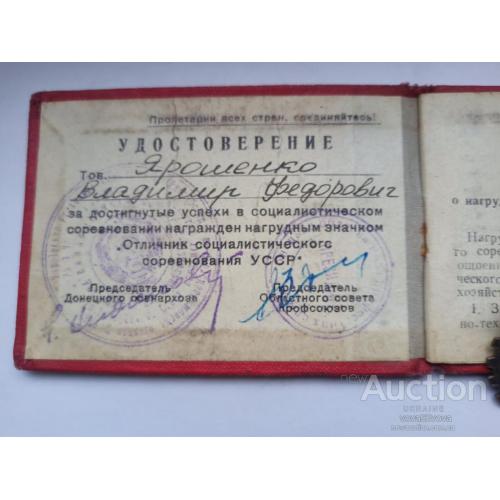 Пролетарии всех стран, соединяйтесь!
УДОСТОВЕРЕНИЕ
Тов. Ярошенко
Владимир Федорович
за достигнутые успехи в социалистическом
соревновании награжден нагрудным значком
"Отличник социалистического
соревнования УССР"
Председатель
Донецкого совнархоза
Председатель
Областного совета
профсоюзов
о нагруд
Нагру
то соре
ческого
хозяйст
1. З
но-тех
Auction
UKRAINE